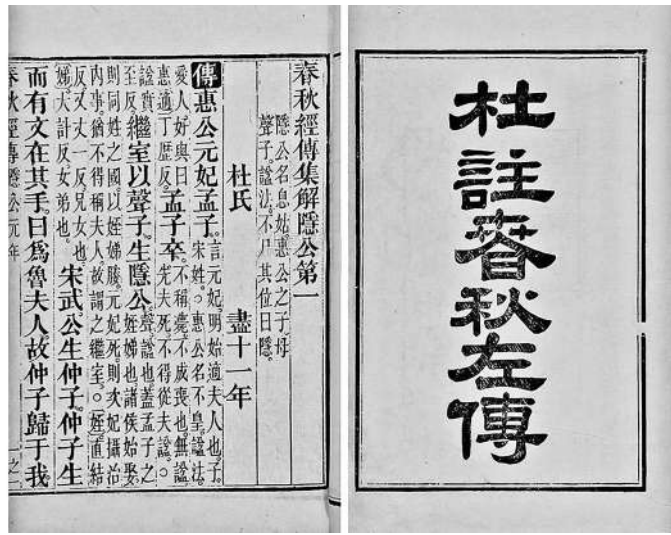 杜註春秋左傳
春秋經傳集解隱公第一
隱公名息姑惠公之子母
聲子。諡法。不尸其位曰隱。
杜氏 盡十一年
傳惠公元妃孟子。言元妃。明始適夫人也。子。宋姓。○惠公名不皇。諡法。
愛人好與曰惠。適丁歷反。孟子卒。不稱薨。不成喪也。無諡。先夫死。不得從夫諡。○
諡實至反。繼室以聲子。生隱公。聲諡也。蓋孟子之姪娣也。諸侯始娶。
則同姓之國以姪娣媵。元妃死。則次妃攝治
內事。猶不得稱夫人。故謂之繼室。○姪。直結
反又丈一反。兄女也。娣大計反女弟也。宋武公生仲子。仲子生
而有文在其手。曰爲魯夫人故仲子歸于我。
春秋經傳隱公元年